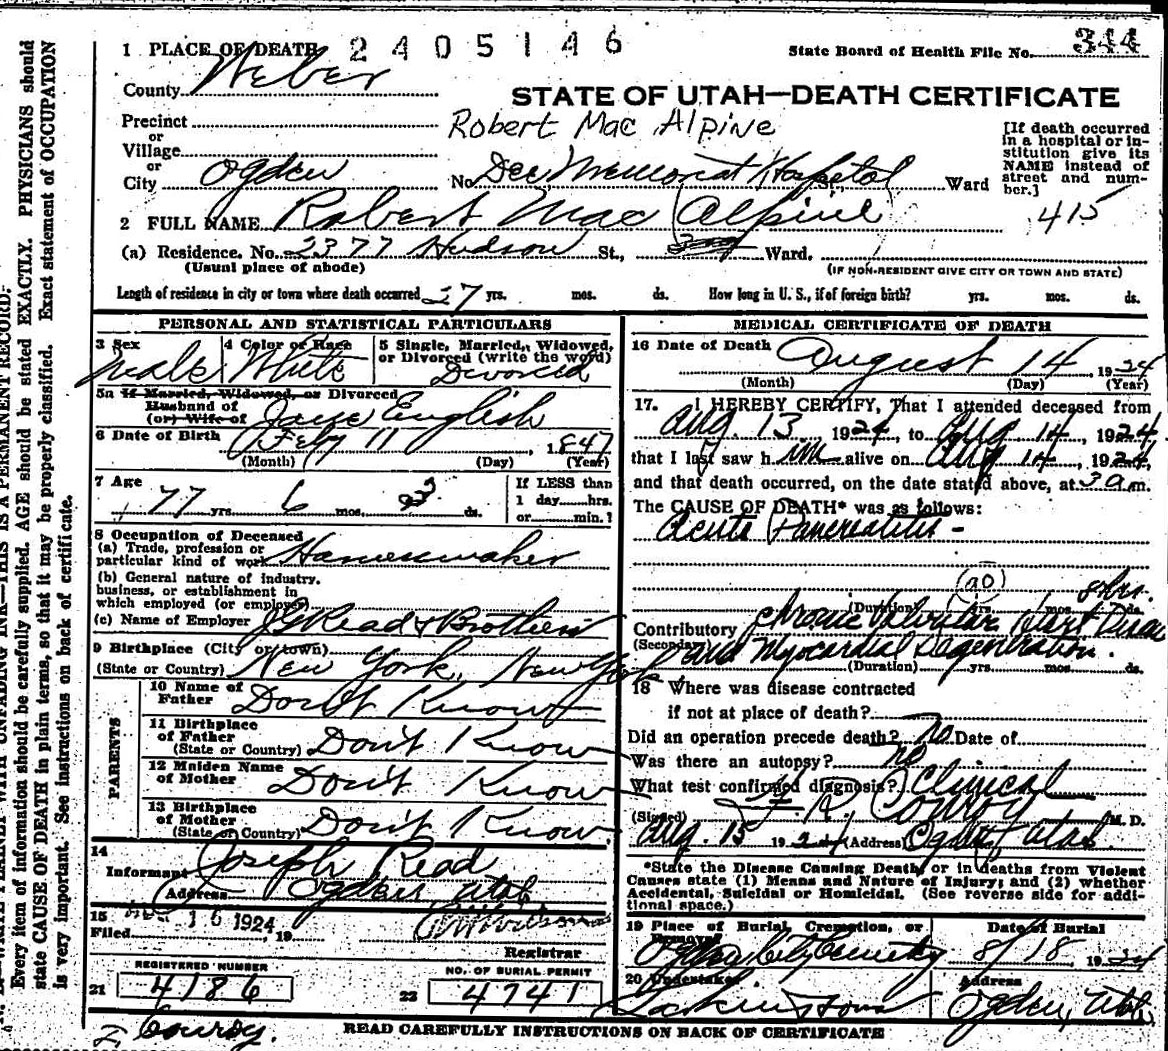 1 PLACE OF DEATH 2405146
State Board of Health File No. 344
County Weber
STATE OF UTAH—DEATH CERTIFICATE
Precinct
or
Village
or
City Ogden
Robert Mac Alpine
No. Dee Memorial Hospital St., Ward
[If death occurred in a hospital or institution give its NAME instead of street and number.]
415
2 FULL NAME Robert Mac Alpine
(a) Residence. No. 2377 Hudson St., Ward.
(Usual place of abode)
(IF NON-RESIDENT GIVE CITY OR TOWN AND STATE)
Length of residence in city or town where death occurred 27 yrs. mos. ds. How long in U. S., if of foreign birth? yrs. mos. ds.
PERSONAL AND STATISTICAL PARTICULARS
3 Sex Male
4 Color or Race White
5 Single, Married, Widowed, or Divorced (write the word) Divorced
5a If Married, Widowed, or Divorced
Husband of
(or) Wife of Jane English
6 Date of Birth Feby 11, 1847
(Month) (Day) (Year)
7 Age 77 yrs. 6 mos. 3 ds.
If LESS than
1 day hrs.
or min.?
8 Occupation of Deceased
(a) Trade, profession or
particular kind of work Harnessmaker
(b) General nature of industry.
business, or establishment in
which employed (or employer)
(c) Name of Employer J G Read & Brothers
9 Birthplace (City or town)
(State or Country) New York, New York
PARENTS
10 Name of
Father Don't Know
11 Birthplace
of Father
(State or Country) Don't Know
12 Maiden Name
of Mother Don't Know
13 Birthplace
of Mother
(State or Country) Don't Know
14
Informant Joseph Read
Address Ogden Utah
15
Filed 16 1924, 19
Registrar
REGISTERED NUMBER
21 4186
NO. OF BURIAL PERMIT
22 4741
MEDICAL CERTIFICATE OF DEATH
16 Date of Death August 14 1924
(Month) (Day) (Year)
17. I HEREBY CERTIFY, That I attended deceased from
Aug. 13 1924, to Aug 14, 1924,
that I last saw him alive on Aug 14, 1924,
and that death occurred, on the date stated above, at 3 a m.
The CAUSE OF DEATH* was as follows:
Acute Pancreatitis -
(Duration) yrs. mos. ds. 8 hrs.
Contributory Chronic Valvular Heart Disease
(Secondary) and Myocardial Degeneration.
(Duration) yrs. mos. ds.
18 Where was disease contracted
if not at place of death?
Did an operation precede death? no Date of
Was there an autopsy? no
What test confirmed diagnosis? Clinical
(Signed) F. K. Conroy M. D.
Aug. 15 1924 (Address) Ogden, Utah.
*State the Disease Causing Death, or in deaths from Violent
Causes state (1) Means and Nature of Injury; and (2) whether
Accidental, Suicidal or Homicidal. (See reverse side for addi-
tional space.)
19 Place of Burial, Cremation, or Removal
Ogden City Cemetery
Date of Burial
8/18 1924
20 Undertaker
Address
Ogden, Utah
Conroy.
READ CAREFULLY INSTRUCTIONS ON BACK OF CERTIFICATE
WRITE PLAINLY WITH UNFADING INK—THIS IS A PERMANENT RECORD.
Every item of information should be carefully supplied. AGE should be stated EXACTLY. PHYSICIANS should
state CAUSE OF DEATH in plain terms, so that it may be properly classified. Exact statement of OCCUPATION
is very important. See instructions on back of certificate.